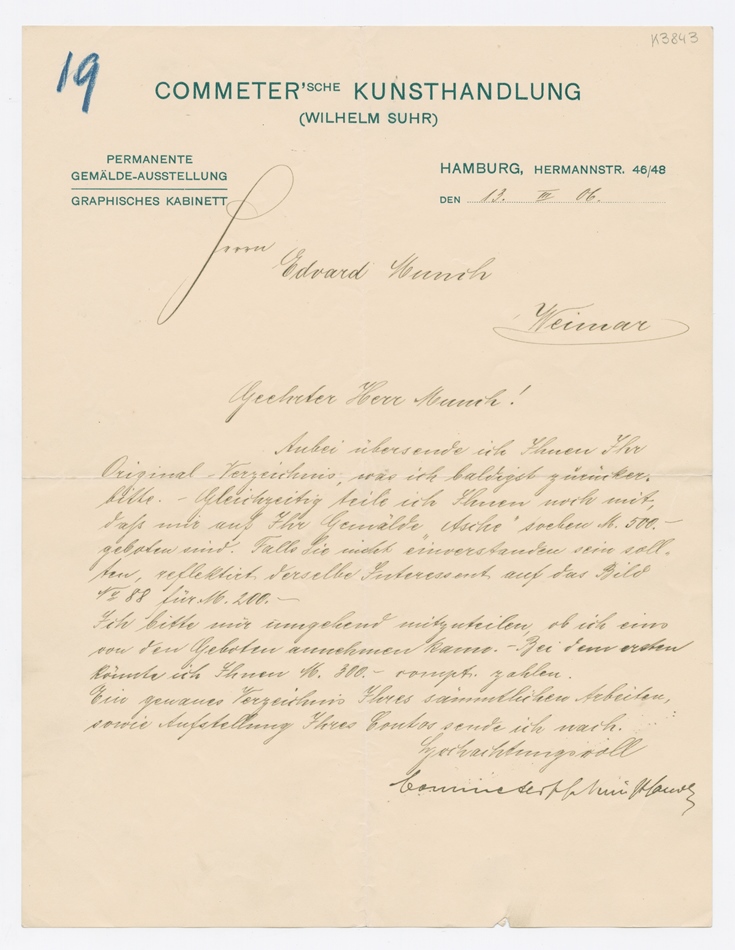 K3843
19
COMMETER'SCHE KUNSTHANDLUNG
(WILHELM SUHR)
PERMANENTE
GEMÄLDE-AUSSTELLUNG
GRAPHISCHES KABINETT
HAMBURG, HERMANNSTR. 46/48
DEN 13. III 06.
Herrn
Edvard Munch
Weimar
Geehrter Herr Munch!
Anbei übersende ich Ihnen Ihr
Original-Verzeichnis, was ich baldigst zurücker-
bitte. – Gleichzeitig teile ich Ihnen noch mit,
daß mir auf Ihr Gemälde „Asche" soeben M. 500.–
geboten sind. Falls Sie nicht einverstanden sein soll-
ten, reflektirt derselbe Interessent auf das Bild
No 88 für M. 200.–
Ich bitte mir umgehend mitzuteilen, ob ich eins
von den Geboten annehmen kann. – Bei dem ersten
könnte ich Ihnen M. 300.– compt. zahlen.
Ein genaues Verzeichnis Ihres sämmtlichen Arbeiten,
sowie Aufstellung Ihres Contos sende ich nach.
Hochachtungsvoll